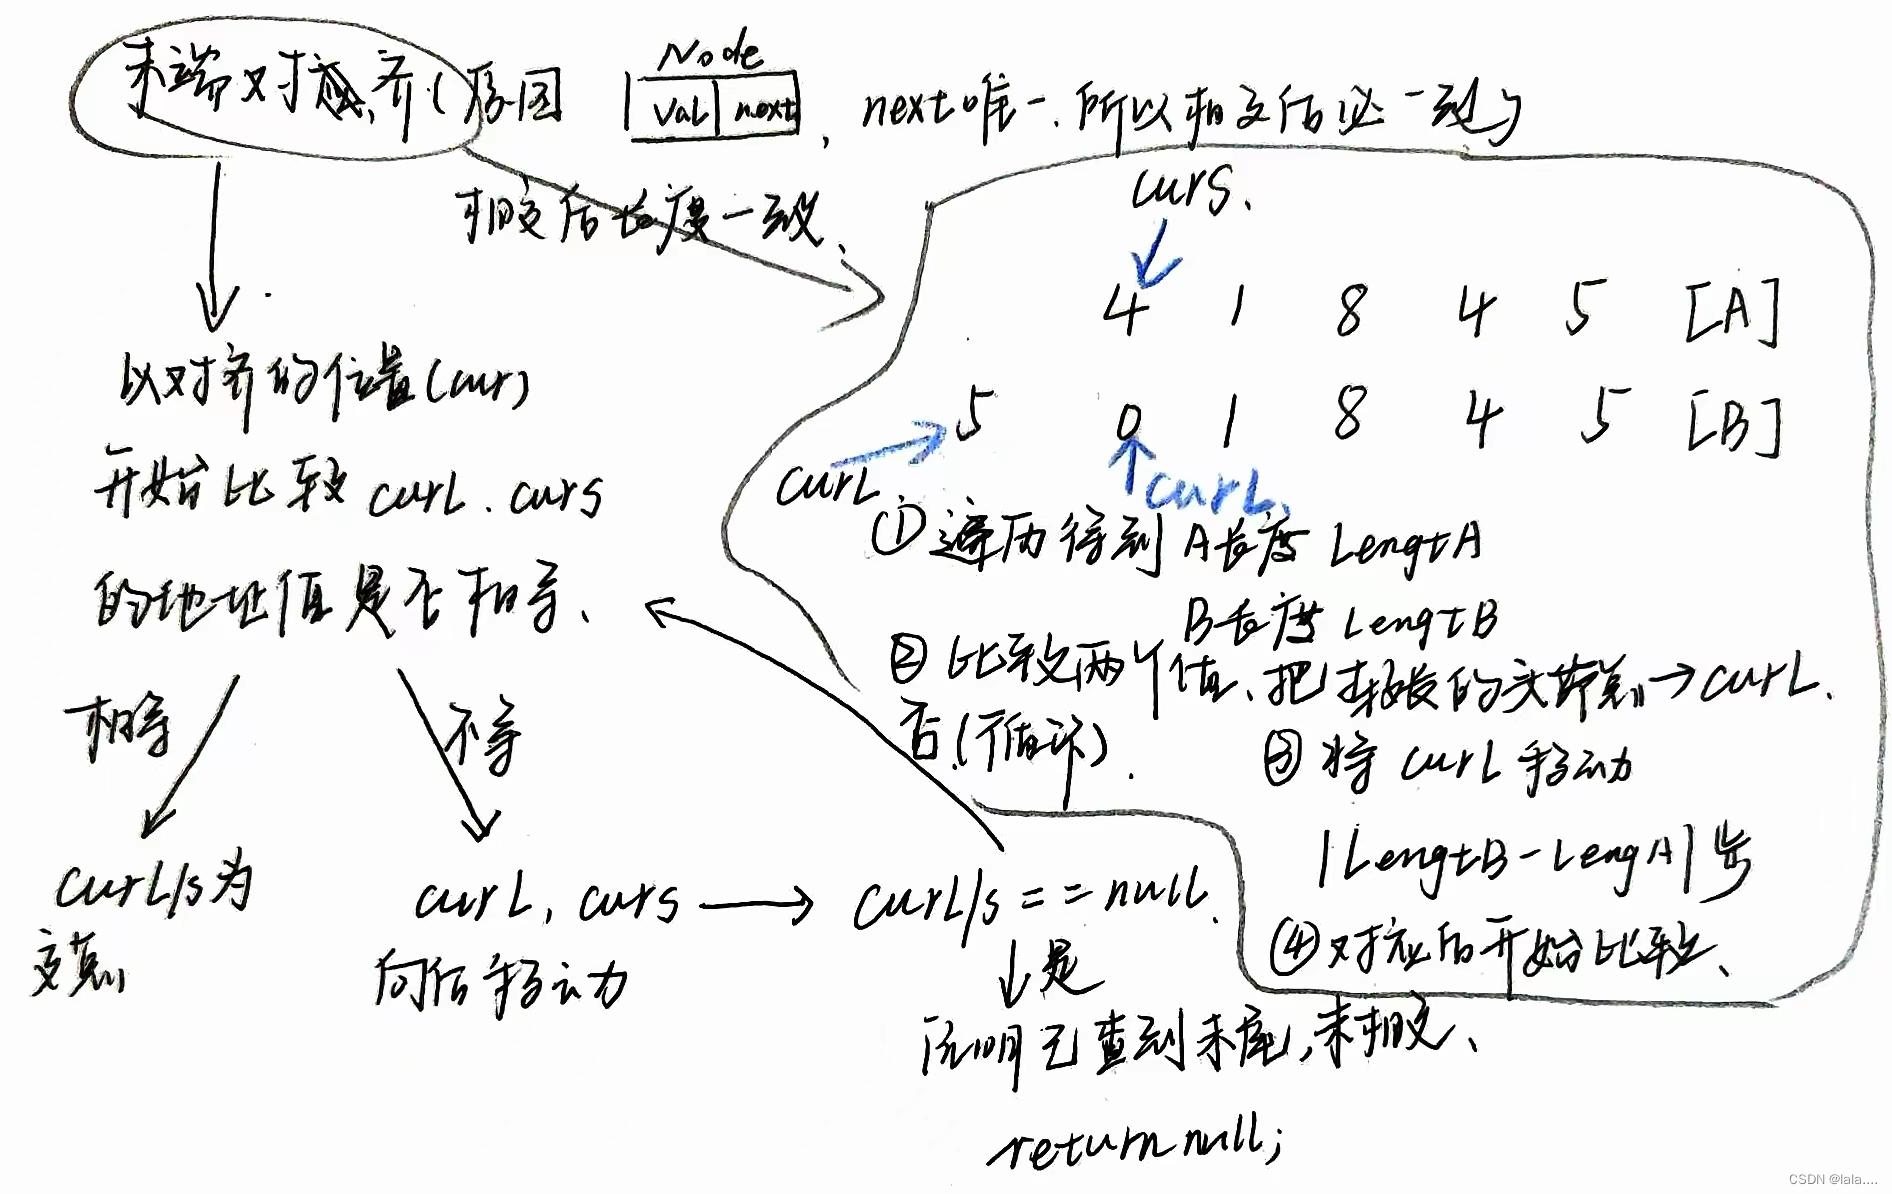 末端对齐(原因
Node
val next
, next唯一.所以相交后必一致)
相交后长度一致、
curs.
4 1 8 4 5 [A]
5 0 1 8 4 5 [B]
curL
curL.
①遍历得到 A长度 LengtA
B长度 LengtB
②比较两个值、把较长的头节点→curL.
③将 curL 移动
|LengtB-LengA|步
④对应后开始比较、
以对齐的位置(cur)
开始比较 curL.curs
的地址值是否相等、
相等
不等
curL/s为
交点
curL, curs
向后移动
curL/s==null.
否.(循环).
是
说明已查到末尾,未相交、
return null;
CSDN @lala....